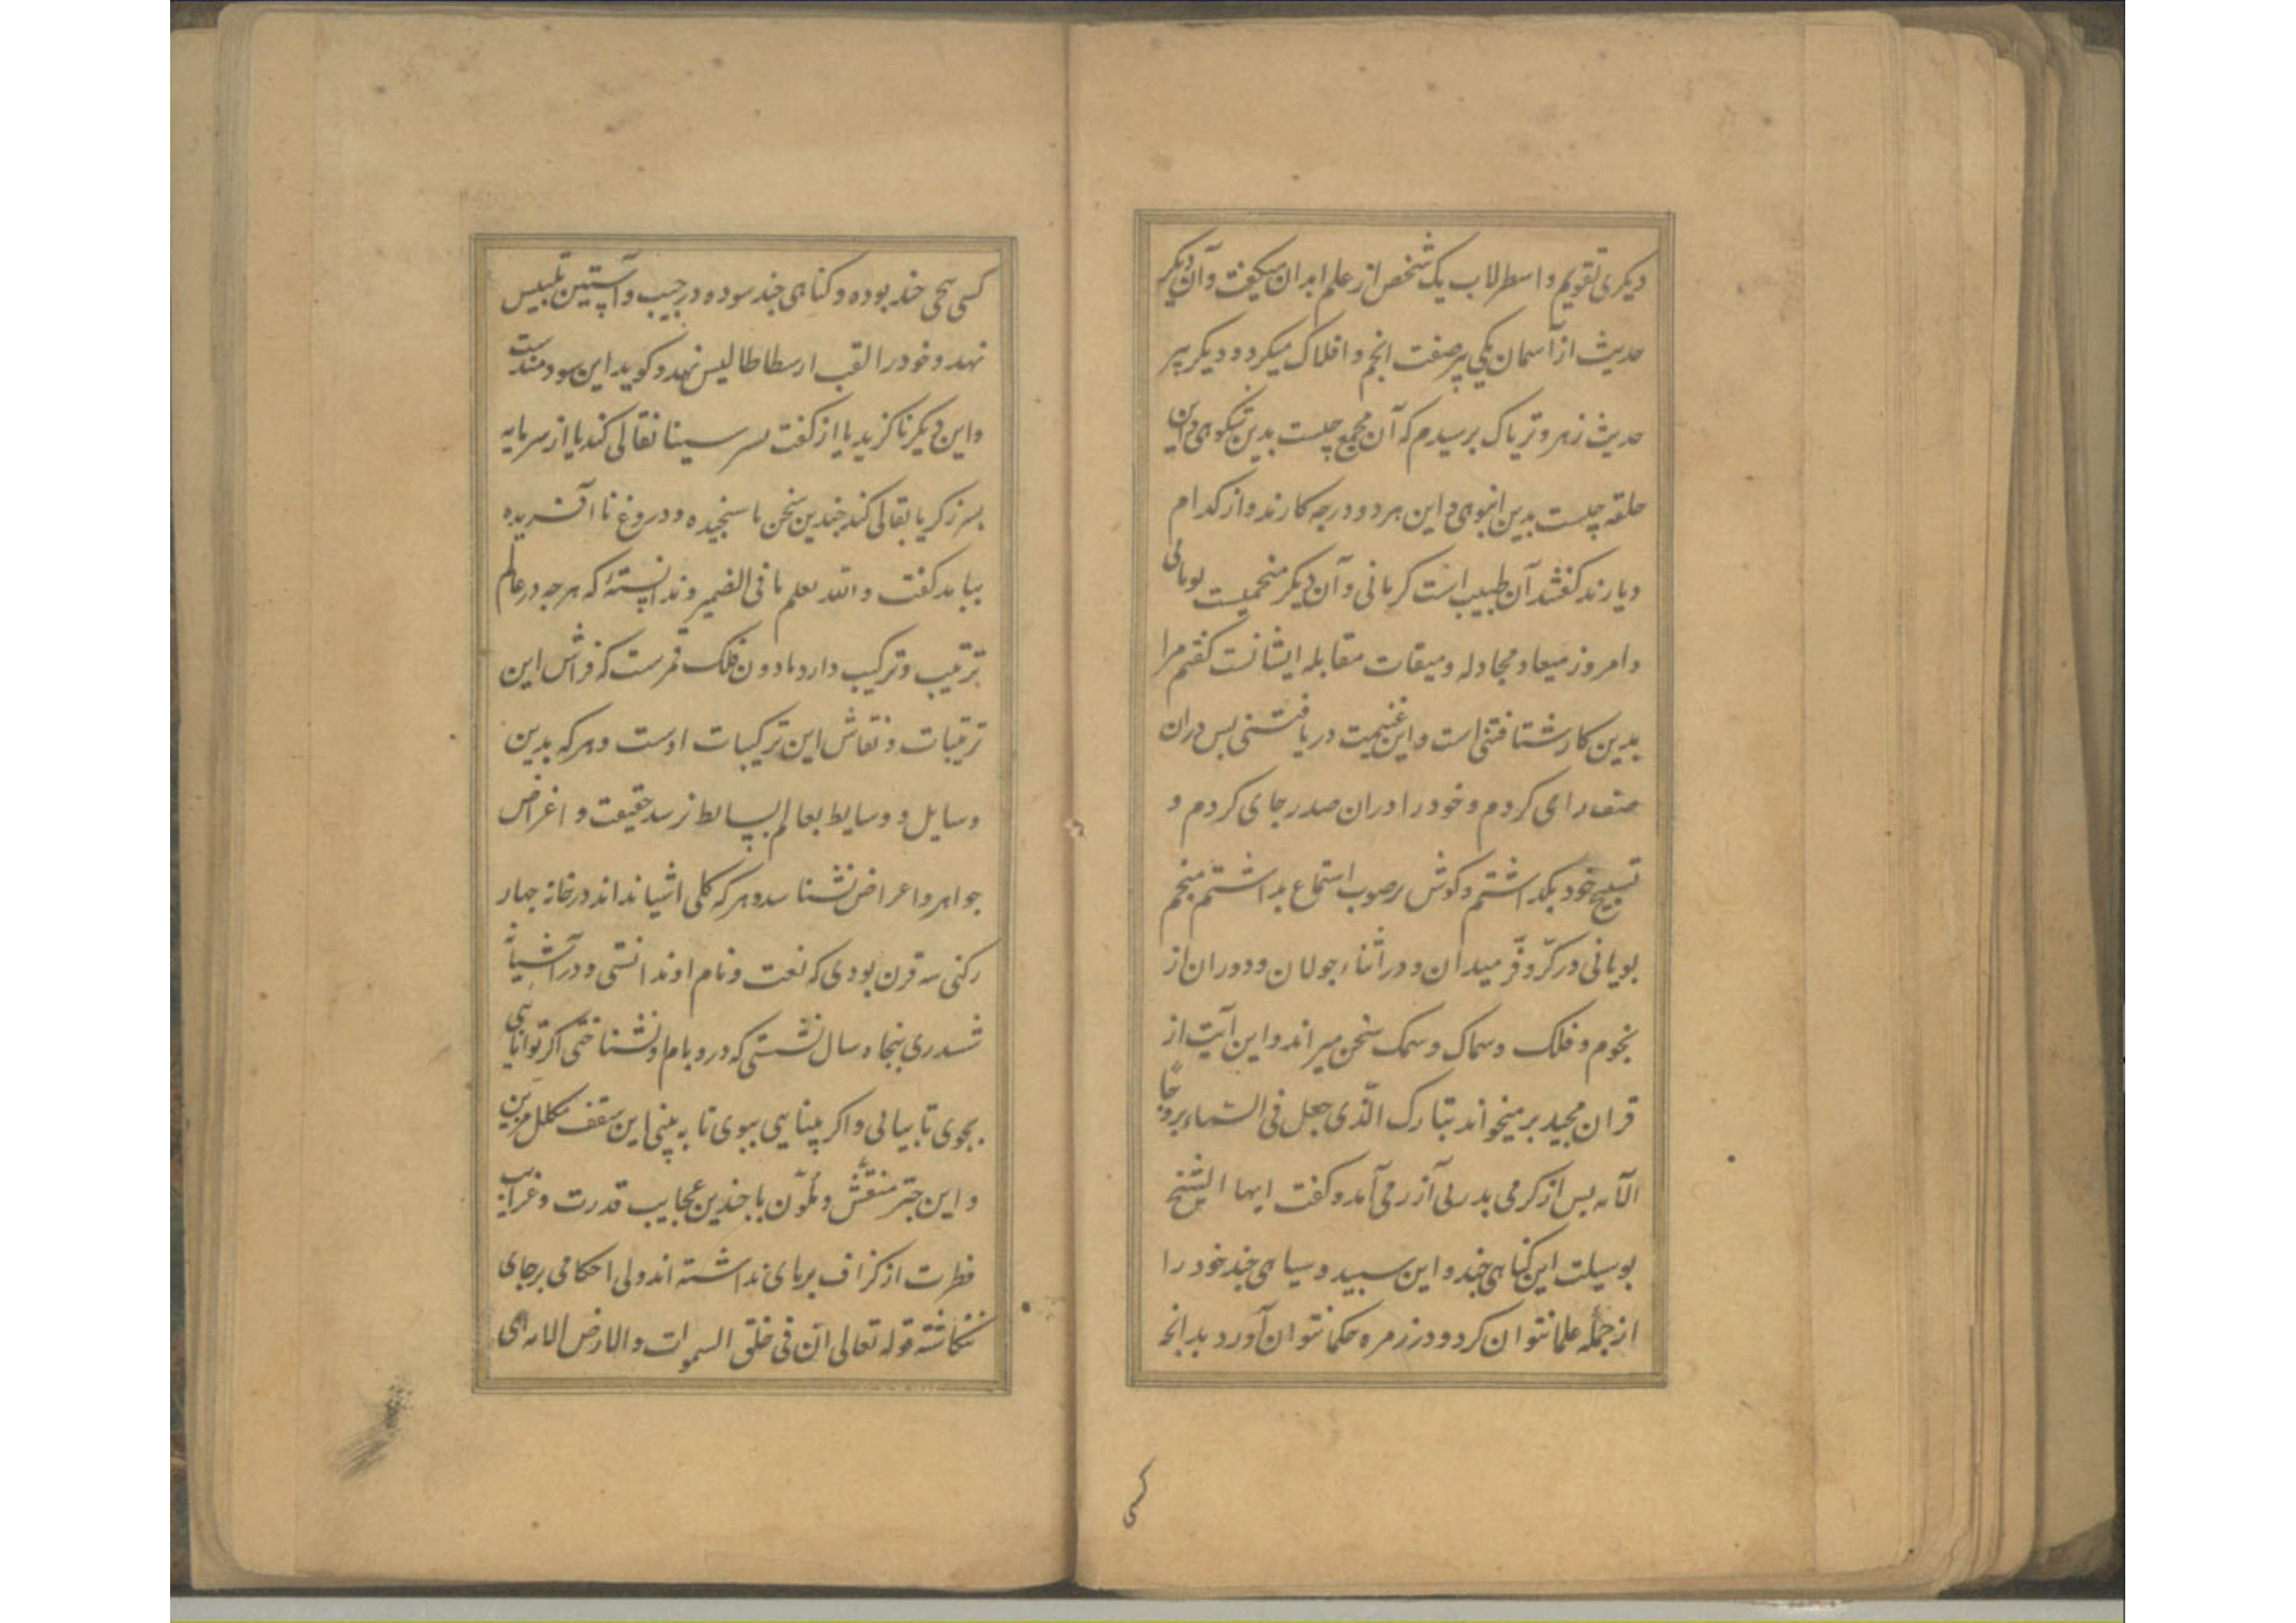 دیکری تقویم و اسطرلاب یک شخص از علم ابدان میکفت و آن دیکر
حدیث از آسمان یکی پر صفت انجم و افلاک میکرد و دیکر پیر
حدیث زهر و تریاک برسیدم که آن مجمع چیست بدین نیکوی و این
حلقه چیست بدین انبوهی و این هر دو در چه کارند و از کدام
دیارند کفتند آن طبیب است کرمانی و آن دیکر منجمیست یونانی
و امروز میعاد مجادله و میقات مقابله ایشانست کفتم مرا
بدین کار شتافتنی است و این غنیمت دریافتنی بس دران
صف رای کردم و خود را دران صدر جای کردم و
تسبیح خود بکداشتم و کوش بر صوب استماع بداشتم منجم
یونانی در کرّ و فرّ میدان و در اثناء جولان و دوران از
نجوم و فلک و سماک و سمک سخن میراند و این آیت از
قران مجید بر میخواند تبارک الّذی جعل فی السّماء بروجًا
الآیه بس از کرمی بدر بی آزرمی آمد و کفت ایها الشیخ
بوسیلت این کتابی چند و این سبید و سیاهی چند خود را
از جملهٔ علما نتوان کرد و در زمره حکما نتوان آورد بدانچه
کسی
کسی بیخی چند بوده و کیاهی چند سوده در جیب و آستین تلبیس
نهد و خود را لقب ارسطاطالیس نهد و کوید این سودمندست
و این دیکر ناکزیر یا از کفت بسر سینا نقالی کند یا از سرمایه
بسر زکریا بقالی کند چندین سخن نا سنجیده و دروغ نا آفریده
بباید کفت و الله یعلم ما فی الضمیر و ندانسته که هر چه در عالم
ترتیب و ترکیب دارد مادون فلک قمرست که فراش این
ترتیبات و نقاش این ترکیبات اوست و هر که بدین
وسایل و وسایط بعالم بسایط نرسد حقیقت و اغراض
جواهر و اعراض نشناسد و هر که کلی اشیا نداند در خانه چهار
رکنی سه قرن بودی که نعت و نام او ندانستی و در آشیانه
شسدری پنجاه سال نشستی که در و بام او نشناختی اکر توانایی
بجوی تا بیابی و اکر بینایی ببوی تا به بینی این سقف مکلل مزین
و این چتر منقّش و ملّون با چندین عجایب قدرت و غرایب
فطرت از کزاف بر بای نداشته اند و بی احکامی بر جای
ننکاشته قوله تعالی انّ فی خلق السموات و الارض الایه ای